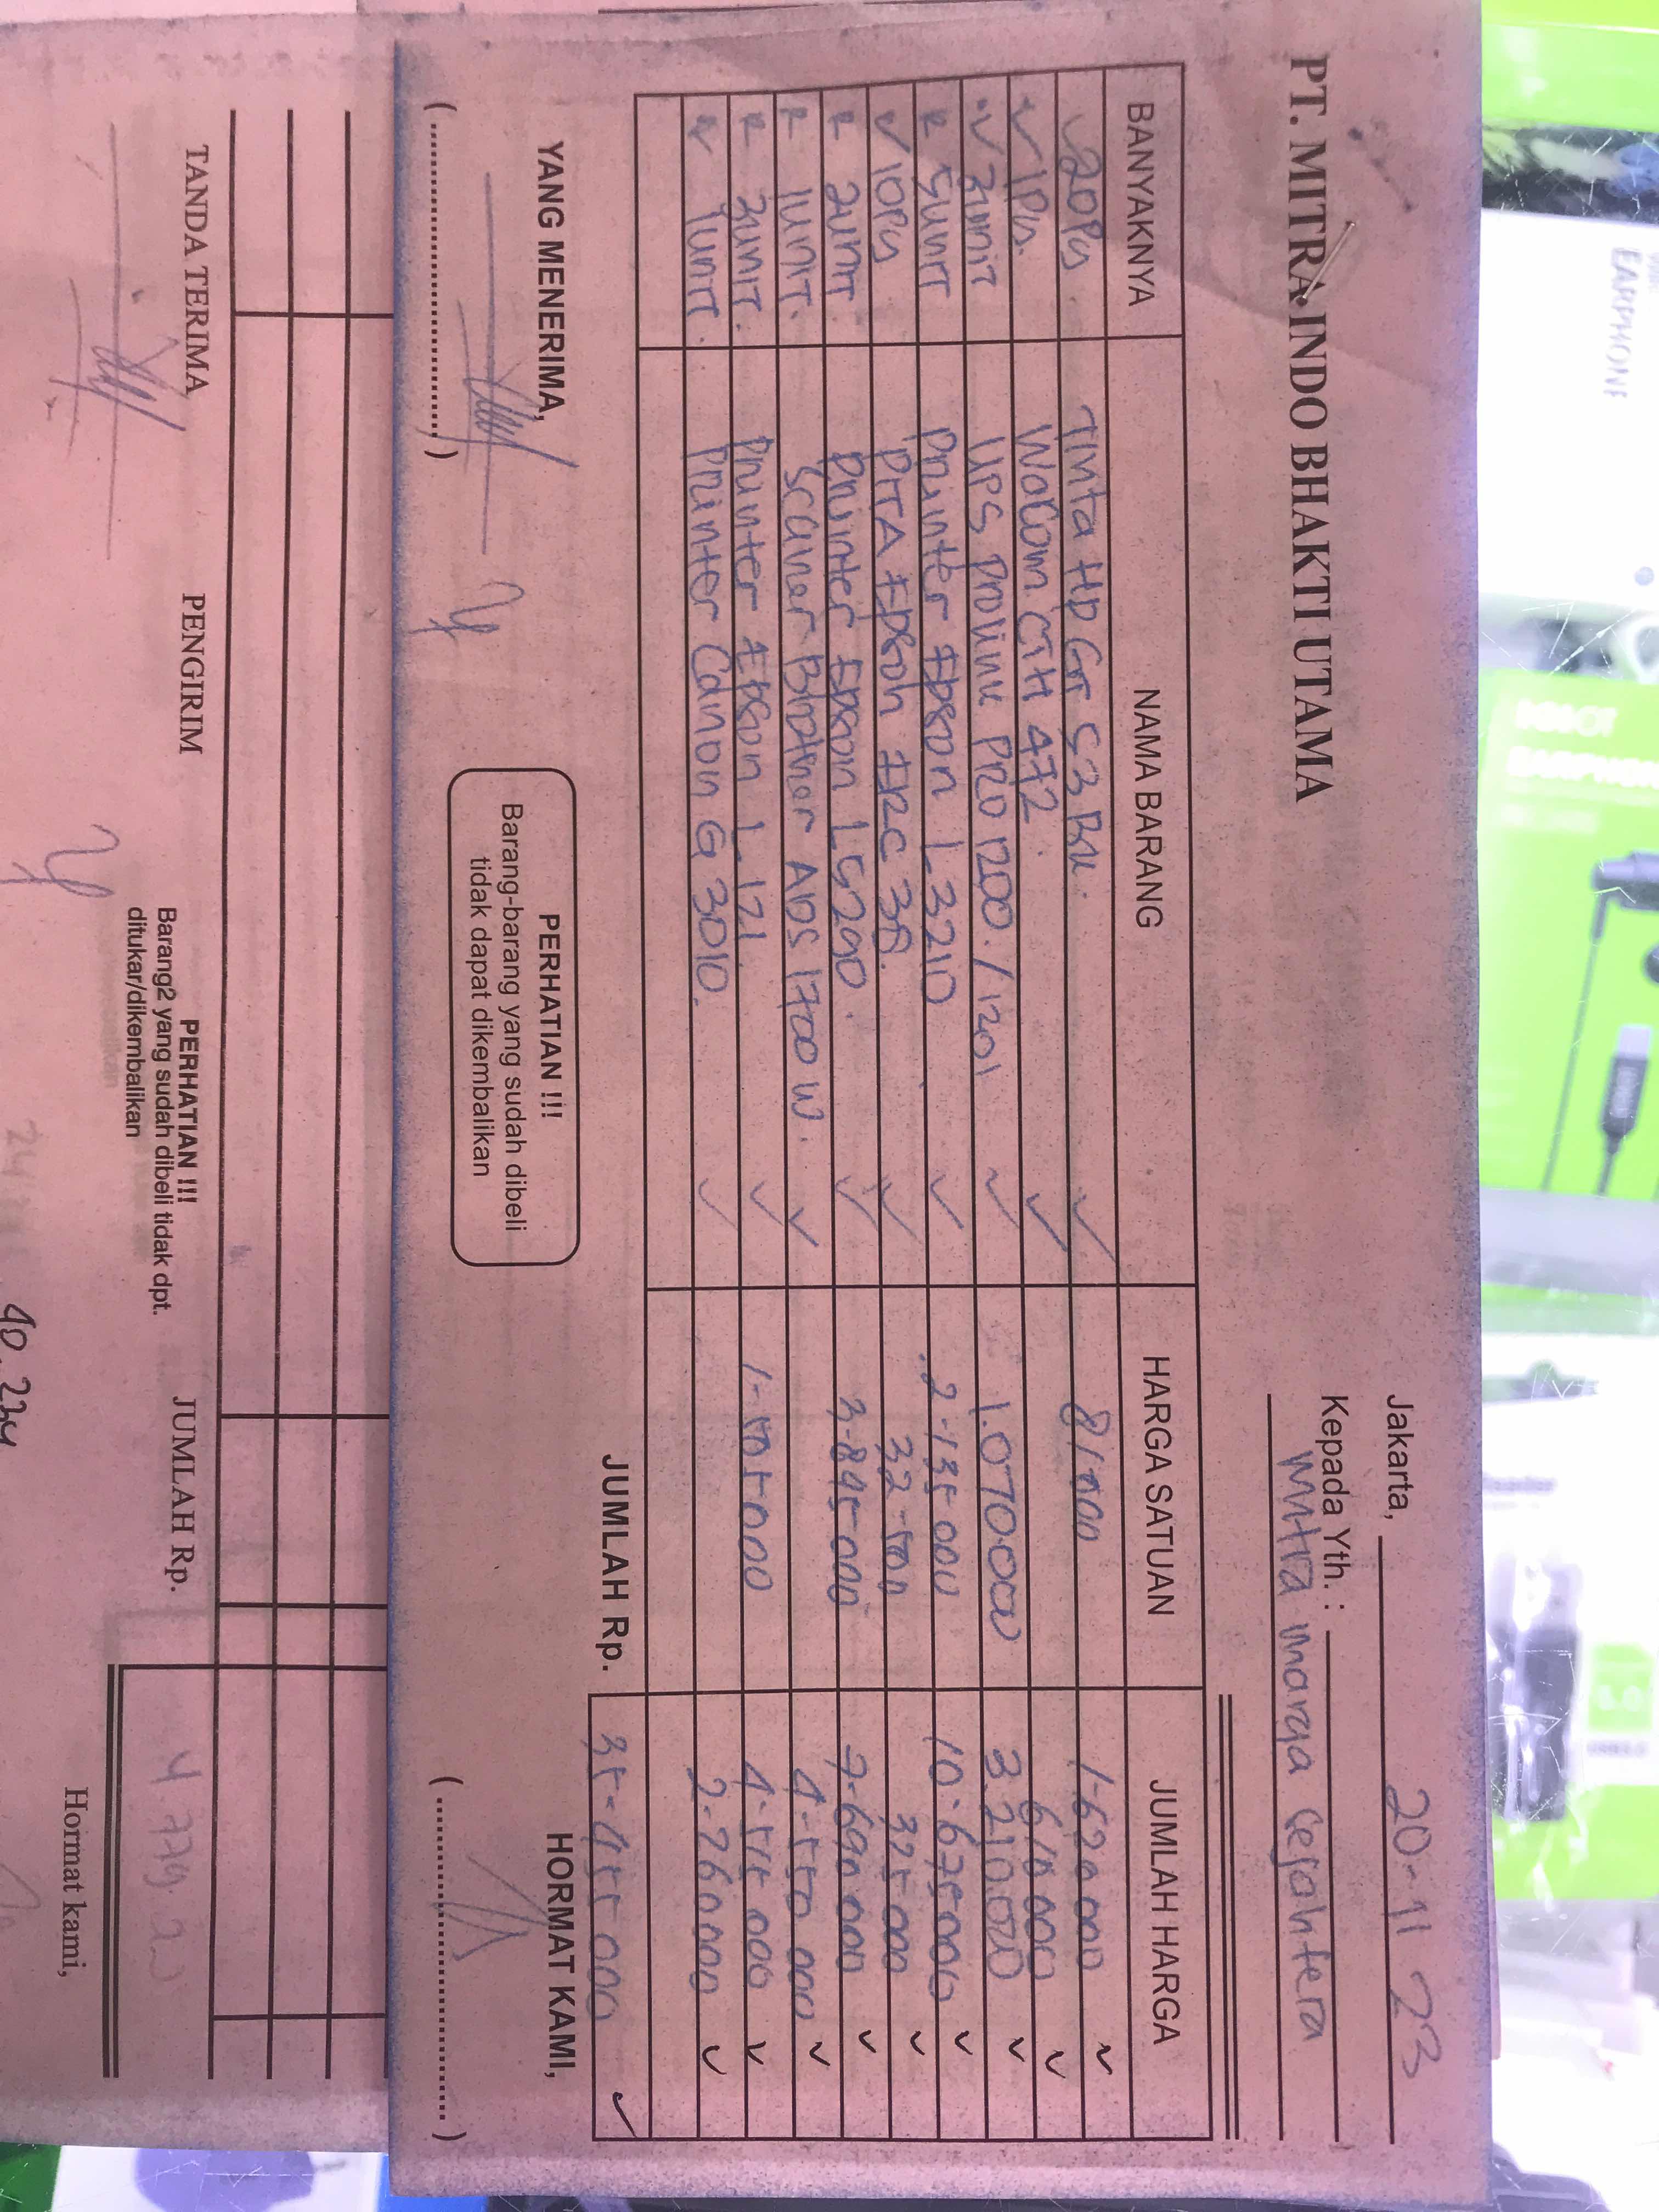 PT. MITRA INDO BHAKTI UTAMA
Jakarta, 20-11 23
Kepada Yth. :
Mitra marga Sejahtera
BANYAKNYA NAMA BARANG HARGA SATUAN JUMLAH HARGA
20pcs Tinta HP GT 53 BK. 81000 1-620 000
1Pcs. Wacom CTH 472. 610 000
3unit UPS Prolink PRO 1200. / 1201 1.070.000 3.210.000
5unit Printer Epson L.3210 2-135 000 10.675 000
10pcs PITA Epson ERC 38. 32-500 325 000
2unit Printer Epson L5290. 3-845 000 7-690 000
1unit. Scaner Brother ADS 1700 W. 4-550 000
3unit. Printer Epson L.121. 1-505 000 4-515 000
1unit. Printer Canon G 3010. 2-260 000
JUMLAH Rp. 35-455 000
YANG MENERIMA, HORMAT KAMI,
PERHATIAN !!!
Barang-barang yang sudah dibeli
tidak dapat dikembalikan
(....................) (....................)
TANDA TERIMA PENGIRIM JUMLAH Rp.
PERHATIAN !!!
Barang2 yang sudah dibeli tidak dpt.
ditukar/dikembalikan
Hormat kami,
EARPHONE